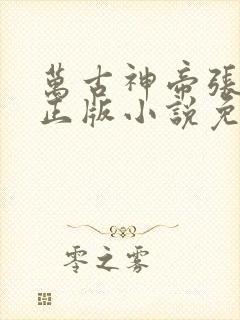 萬古神帝張
正版小說免
零之雾